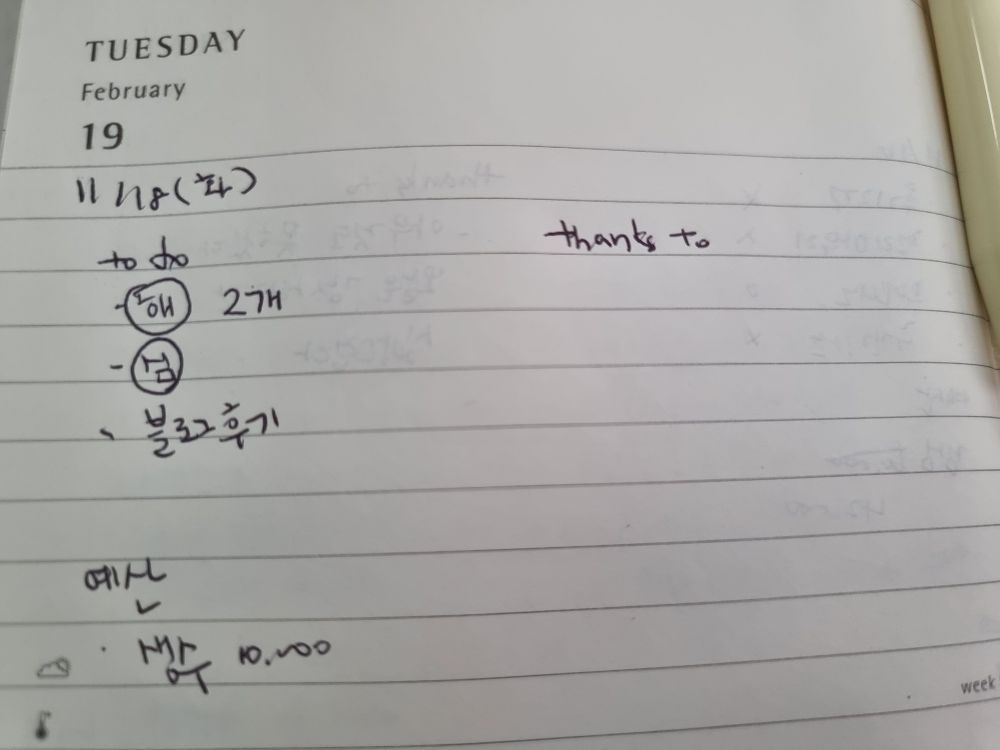 TUESDAY
February
19
11 / 18 (화)
to do
thanks to
- 해 2개
- 금
- 블로그 후기
예산
새우 10.000
week